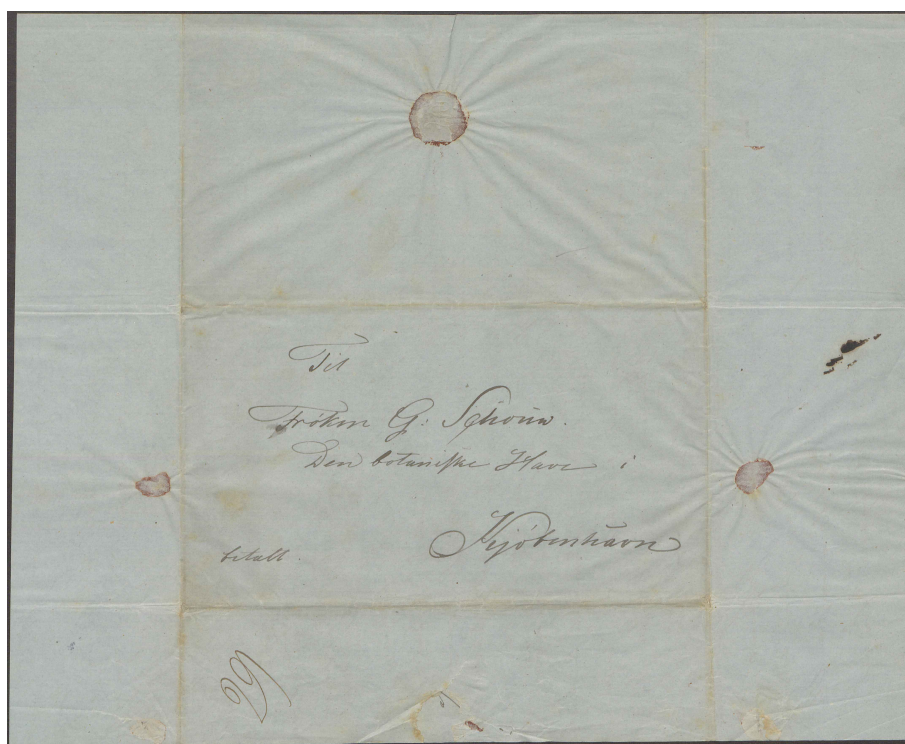 Til
Frøken G: Schouw.
Den botaniske Have i
Kjöbenhavn
betalt.